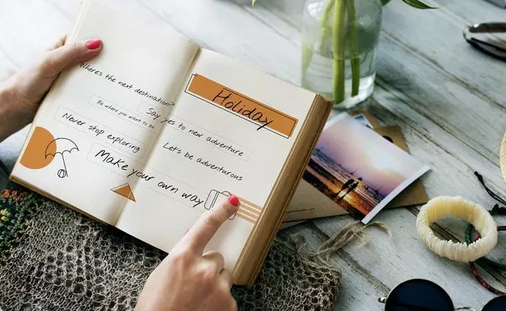 Where's the next destination?
Be where you want to be
Never stop exploring
Holiday
Say yes to new adventure
Let's be adventurous
Make your own way